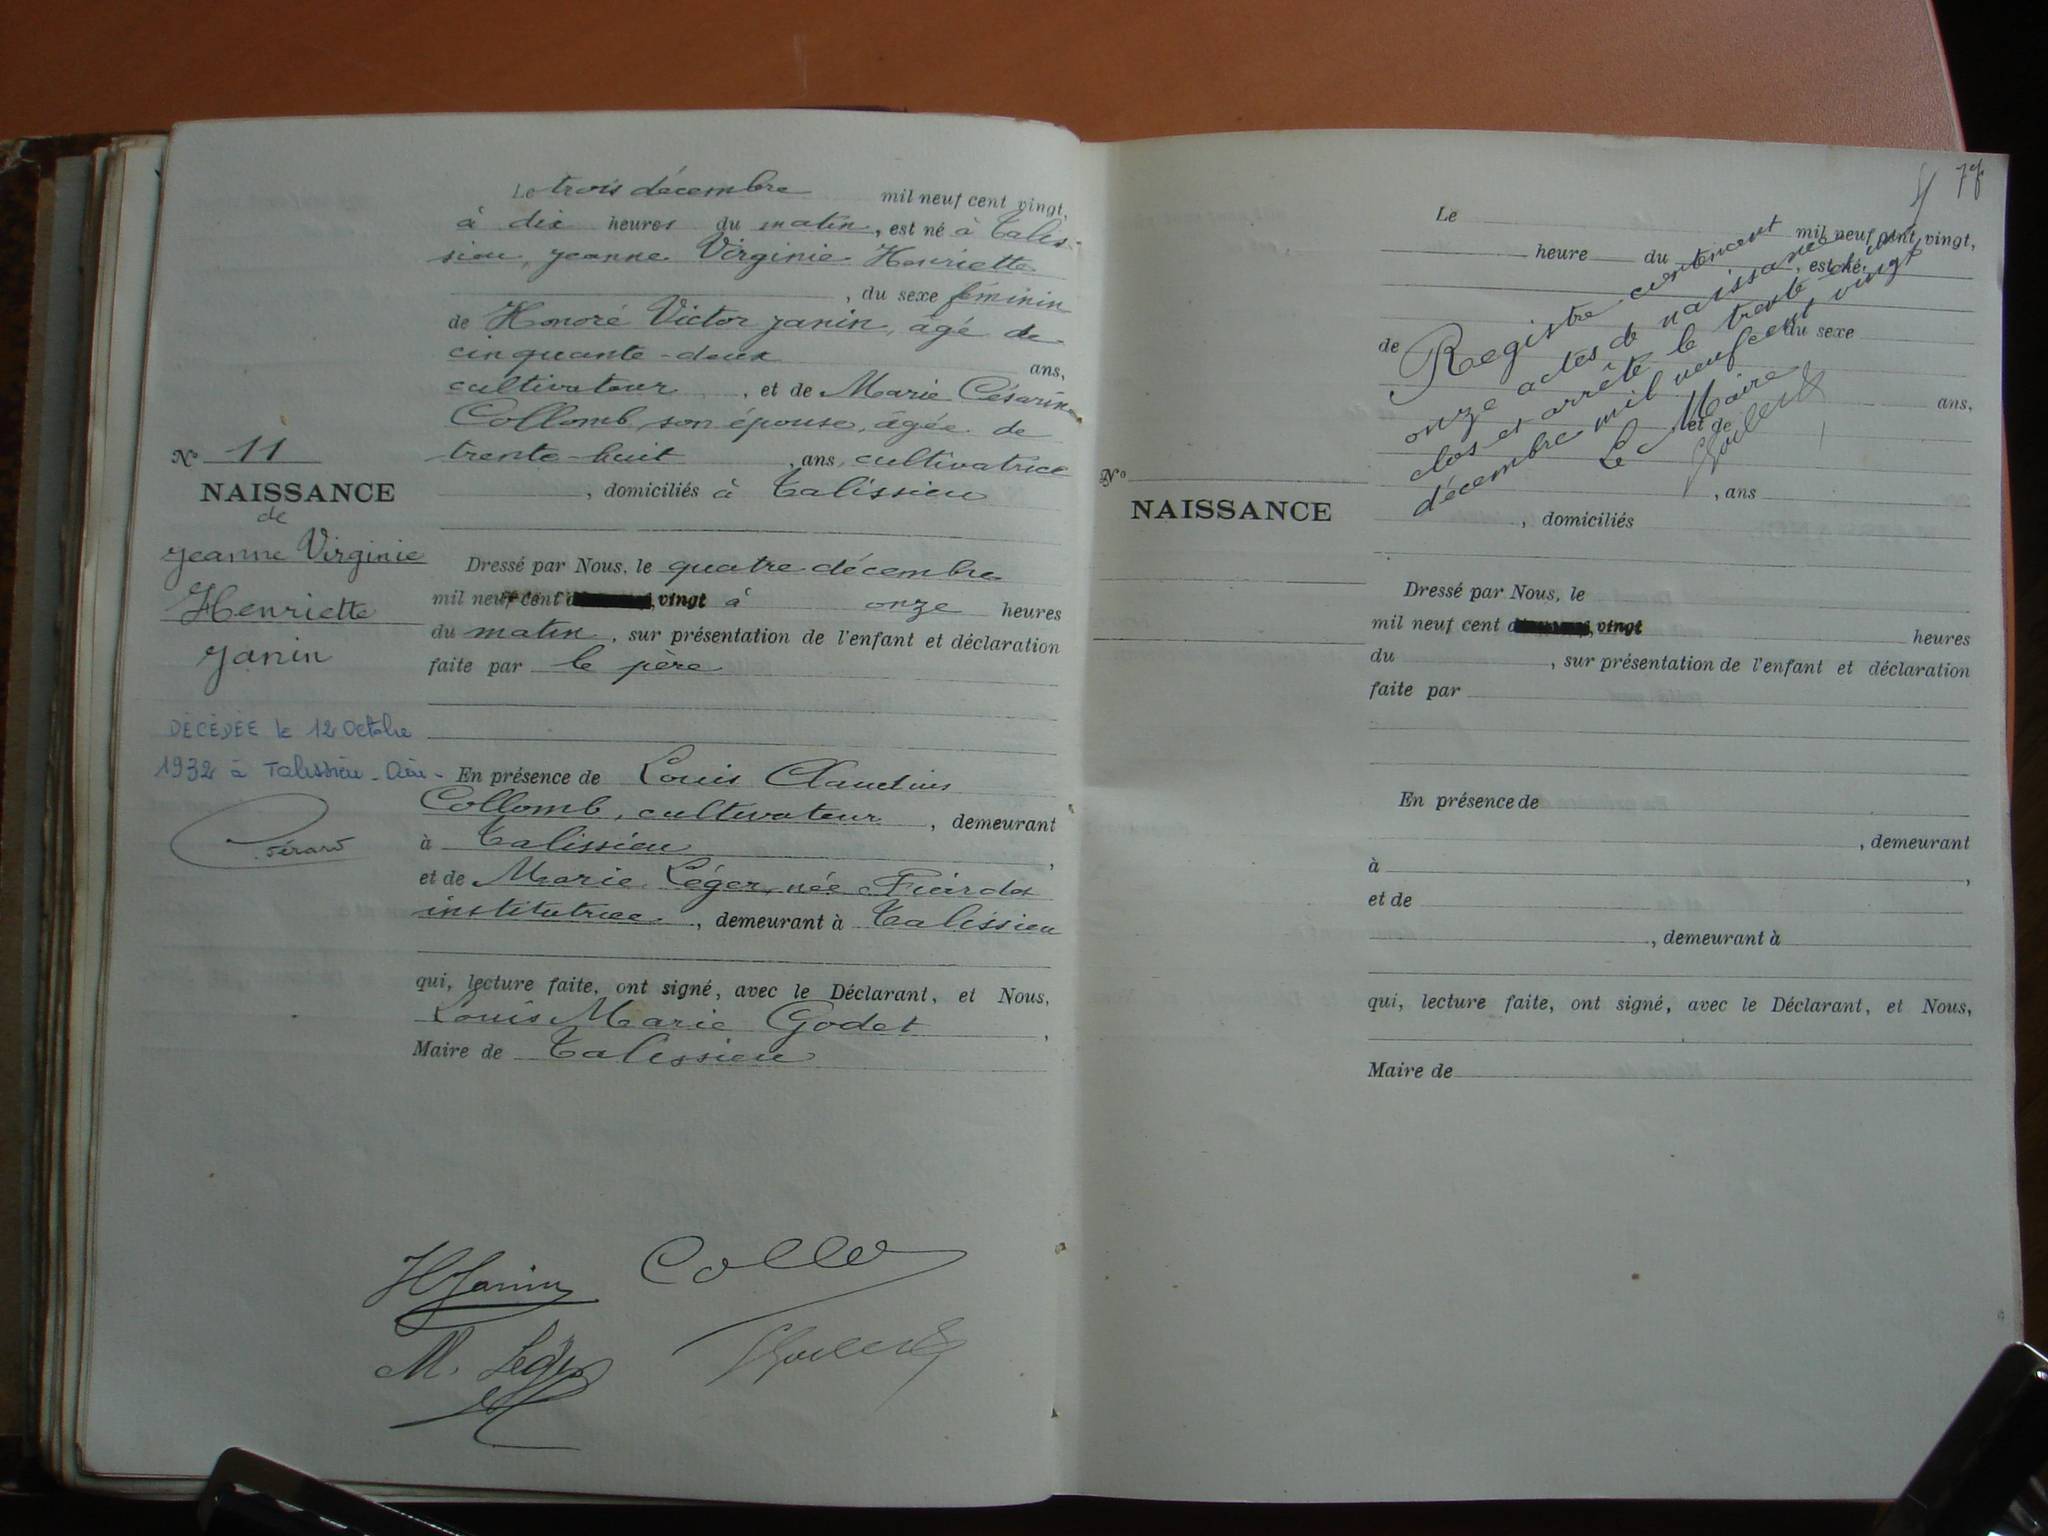 Le trois décembre mil neuf cent vingt,
à dix heures du matin, est né à Talis-
sieu, Jeanne Virginie Henriette
, du sexe féminin
de Honoré Victor Janin, âgé de
cinquante-deux ans,
cultivateur, et de Marie Césarine
Collomb, son épouse, âgée de
trente-huit, ans, cultivatrice
, domiciliés à Talissieu
No 11
NAISSANCE
de
Jeanne Virginie
Henriette
Janin
DÉCÉDÉE le 12 Octobre
1932 à Talissieu - Ain -
Gérard
Dressé par Nous, le quatre décembre
mil neuf cent vingt à onze heures
du matin, sur présentation de l'enfant et déclaration
faite par le père
En présence de Louis Claudius
Collomb, cultivateur, demeurant
à Talissieu,
et de Marie Léger, née
institutrice, demeurant à Talissieu
qui, lecture faite, ont signé, avec le Déclarant, et Nous,
Louis Marie Godet,
Maire de Talissieu
HJanin
M. Léger
Le mil neuf cent vingt,
heure du , est né
du sexe
de
ans,
et de
, ans
, domiciliés
Registre contenant
onze actes de naissance
clos et arrêté le trente et un
décembre mil neuf cent vingt
Le Maire
No
NAISSANCE
Dressé par Nous, le
mil neuf cent vingt heures
du , sur présentation de l'enfant et déclaration
faite par
En présence de
, demeurant
à ,
et de
, demeurant à
qui, lecture faite, ont signé, avec le Déclarant, et Nous,
Maire de